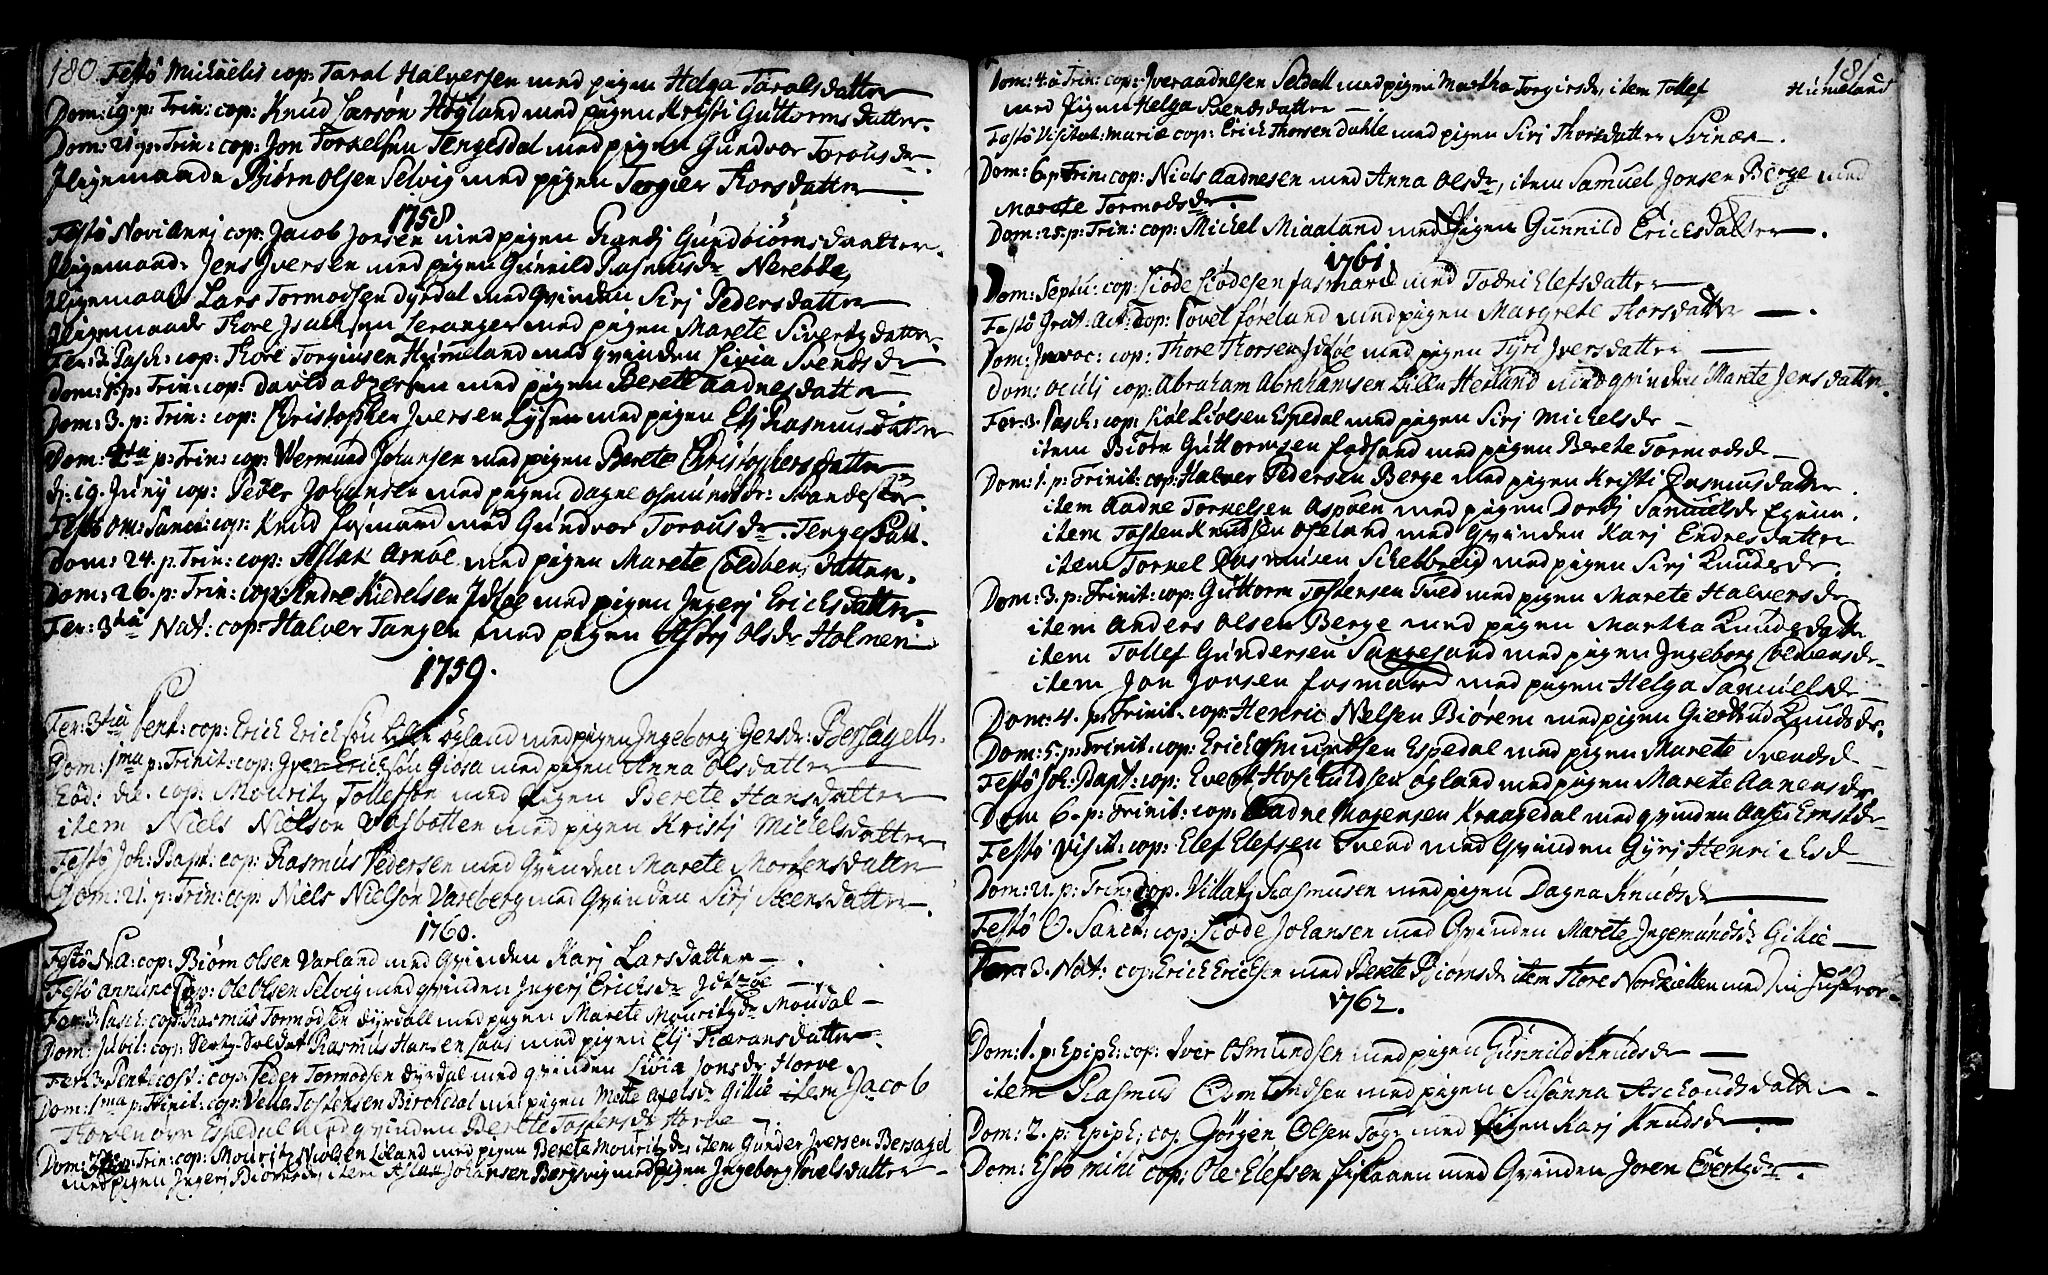 180
Festo Michaelis cop: Taral Halversen med pigen Helga Taralsdatter
Dom: 19. p: Trin: cop: Knud Larsøn Høgland med pigen Kristi Guttormsdatter.
Dom: 21. p: Trin: cop: Jon Torkelsen Tengesdal med pigen Gundvor Torousdr.
Jligemaade Biørn Olsen Selvig med pigen Torgier Thorsdatter
1758
Festo Novi Annj cop: Jacob Jonsen med pigen Randj Gundbiørnsdatter.
Jligemaade Jens Jversen med pigen Gunnild Rasmusdr Nerebøe
Jligemaade Lars Tormodsen Dyrdal med Qvinden Sirj Pedersdatter
Jligemaade Thore Jsachsen Leranger med pigen Marete Sivertzdatter.
Fer: 3. Pasch: cop: Thore Torgiusen Hummeland med qvinden Livia Svendsdr
Dom: p: Trin: cop: David med pigen Berete Aadnesdatter
Dom: 3. p: Trin: cop: Christopher Jversen Lysen med pigen Elj Rasmusdatter
Dom: 4ta p: Trin: cop: Wermund Johansen med pigen Berete Christophersdatter
d: 19. Junij cop: Peder Johansen med pigen Dagne Osmundsdr:
Festo Om: Sanct: cop: Knud Fosmand med Gundvor Torousdr. Tenges
Dom: 24. p. Trin: cop: Aslak Arnøe med pigen Marete Coldbensdatter.
Dom: 26. p: Trin: cop: Andre Kidelsen Jdsøe med pigen Jngerj Ericksdatter
Fer: 3tia Nat: cop: Halver Tangen med pigen Astrj Olsdr Holmen
1759.
Fer: 3tia Pent: cop: Erick Ericksøn Lille Ogland med pigen Jngeborg Jensdr: Bersagell.
Dom: 1ma p: Trinit: cop: Jver Ericksøn Giosa med pigen Anna Olsdatter
Eod: die. cop: Mouritz Tollefsøn med Pigen Berete Hansdatter
item Niels Nielsøn Vasbotten med pigen Kristj Michelsdatter
Festo Joh: Bapt: cop: Rasmus Pedersen med Qvinden Marete Mortensdatter
Dom: 21. p: Trin: cop: Niels Nielsøn Varberg med Qvinden Sirj Steensdatter.
1760.
Festo Na: cop: Biørn Olsen Varland med Qvinden Karj Larsdatter
Festo Annunc cop: Ole Olsen Selvig med qvinden Jngerj Ericksdr Jdsøe
Fer: 3. Pasch: cop: Rasmus Tormodsen Dyrdall med pigen Marete Mouritzdr Moudal
Dom: Jubil: cop: Soldat Rasmus Hansen Laas med pigen Elj Tiæransdatter.
Fer: 3. Pentecost: cop: Peder Tormodsen Dyrdal med qvinden Livia Jonsdr Horve.
Dom: 1ma p: Trinit: cop: Velle Tostensen Birchedal med pigen Mette Axelsdr Gillie item Jacob
Espedal med qvinden Berete Tostensdr Horve
Dom: p: Trin: cop: Mouritz Nielsen Lieland med pigen Berete Mouritzdr item Gunder Jversen Bersagel
med pigen Jngerj Biørnsdr, item Aslak Johansen Bergsvig med pigen Jngeborg Povelsdatter
181
Dom: 4. a Trin: cop: Jver Aadnesen Seldall med pigen Martha Torgiersdr, item Tollef Hummeland
med Pigen Helga Svendsdatter
Festo Visitat: Mariæ cop: Erick Thorsen Dahle med pigen Sirj Thorsdatter Svinæs.
Dom: 6. p: Trin: cop: Niels Aadnesen med Anna Olsdr, item Samuel Jonsen Berge med
Marete Tormodsdr.
Dom: 25. p: Trin: cop: Michel Miaaland med Pigen Gunnild Ericksdatter.
1761.
Dom: Septu: cop: Fosmark med Todni Elefsdatter
Festo Grat: Act: cop: Povel Føreland med pigen Margrete Thorsdatter
Dom: Jnvoc: cop: Thore Thorsen Jdsøe med pigen Tyri Jversdatter
Dom: Oculj cop: Abraham Abrahamsen Lille Heiland med qvinden Marete Jensdatter.
Fer: 3. Pasch: cop: Espedal med pigen Sirj Michelsdr
item Biørn Guttormsen Fossand med pigen Berete Tormodsdr
Dom: 1. p: Trinit: cop: Halver Pedersen Berge med pigen Kristi Rasmusdatter
item Aadne Torkelsen Aspøen med pigen Dordj Samuelsdr
item Tosten Knudsen Oseland med Qvinden Karj Endresdatter
item Torkel Rasmusen Schelbreig med pigen Sirj Knudsdr.
Dom: 3. p: Trinit: cop: Guttorm Tostensen Tved med pigen Marete Halversdr
item Anders Olsen Berge med pigen Martha Knudsdattr
item Tollef Gundersen Sangesand med pigen Jngeborg Coldbensdr
item Jon Jonsen Fosmark med pigen Helga Samuelsdr
Dom: 4. p: Trinit: cop: Henric Nelsen Biørem med pigen Giertrud Knudsdr.
Dom: 5. p: Trinit: cop: Erick Osmundsen Espedal med pigen Marete Svendsd
Festo Joh: Bapt: cop: Evert Hoskuldsen Ogland med pigen Marete Aanensdr
Dom 6. p: Trinit: cop: Aadne Mogensen Kraagedal med qvinden Aase Ernstdr
Festo Visit: cop: Elef Elefsen Svend med Qvinden Gyrj Henrichsd
Dom: 21. p: Trin: cop. Villatz Rasmusen med pigen Dagna Knudsdr
Festo O. Sanct: cop: Liode Johansen med Qvinden Marete Jngemundsdr Gillie
Fer: 3. Nat: cop: Erick Ericksen med Berete Biørnsdr item Thore Nordkietten med
1762.
Dom: 1. p: Epiph: cop: Jver Osmundsen med pigen Gunnild Knudsdr
item Rasmus Osmundsen med pigen Susanna Aschoudsdatter
Dom: 2. p: Epiph: cop Jørgen Olsen Foge med Pigen Karj Knudsdr
Dom: Esto mihi cop: Ole Elefsen Fiskaaen med Qvinden Joren Evertzdr.